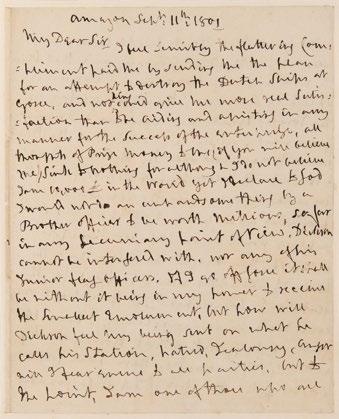 Amazon Sept: 11th: 1801
My Dear Sir
I feel sensibly the flattering Com-
=pliment paid me by sending me the plan
for an attempt to destroy the Dutch Ships at
Goree, and nothing could give me more real Satis-
=faction than the aiding and assisting in any
manner for the success of the enterprize, all
thoughts of Prize Money to me, if you will believe
me, sink to nothing for although I do not believe
I am 10,000£ in the World yet I declare to God
I would not do an unhandsome thing by a
Brother officer to be worth Millions, so far
in any pecuniary point of View. Dickson
cannot be interfered with, nor any of his
Junior flag officers. If I go off Goree it shall
be without it being in my power to receive
the smallest Emolument, but how will
Dickson feel my being sent on what he
calls his Station, hatred, Jealousy, &
will I fear ensue to all parties, but to
the point, I am one of those who all